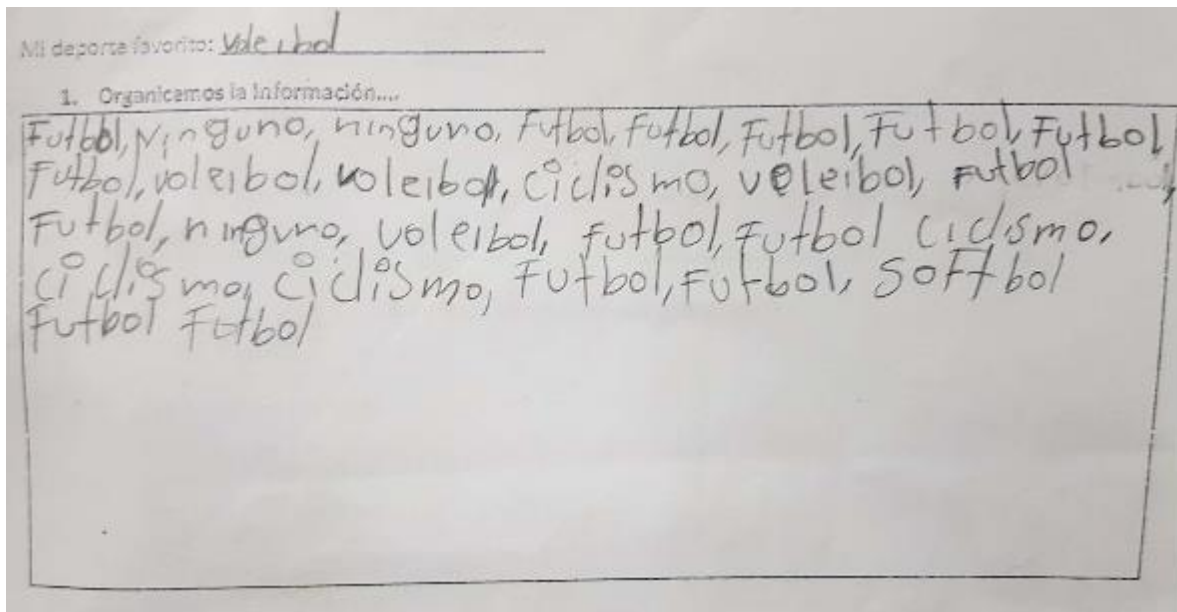 Mi deporte favorito: Voleibol
1. Organicemos la información....
Futbol, Ninguno, ninguno, Futbol, Futbol, Futbol, Futbol, Futbol
Futbol, voleibol, voleibol, ciclismo, voleibol, Futbol
Futbol, ninguno, voleibol, futbol, futbol ciclismo,
ciclismo, ciclismo, Futbol, Futbol, Softbol
Futbol Futbol